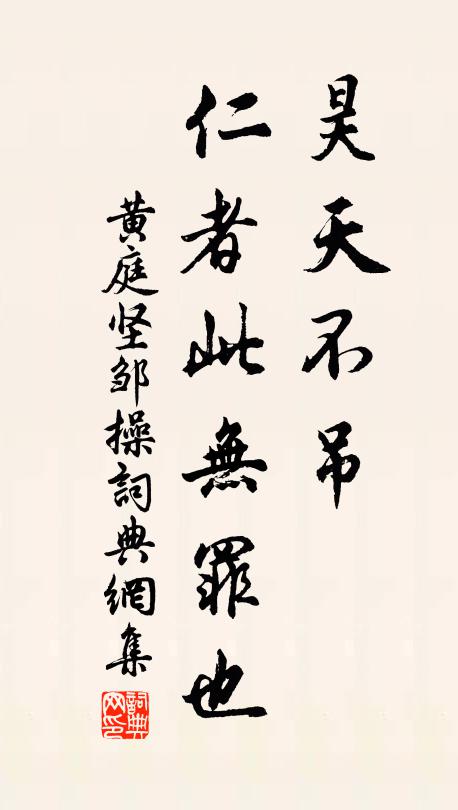 昊天不吊
仁者此無罪也
黄庭坚邹操詞典網集
詞典网印